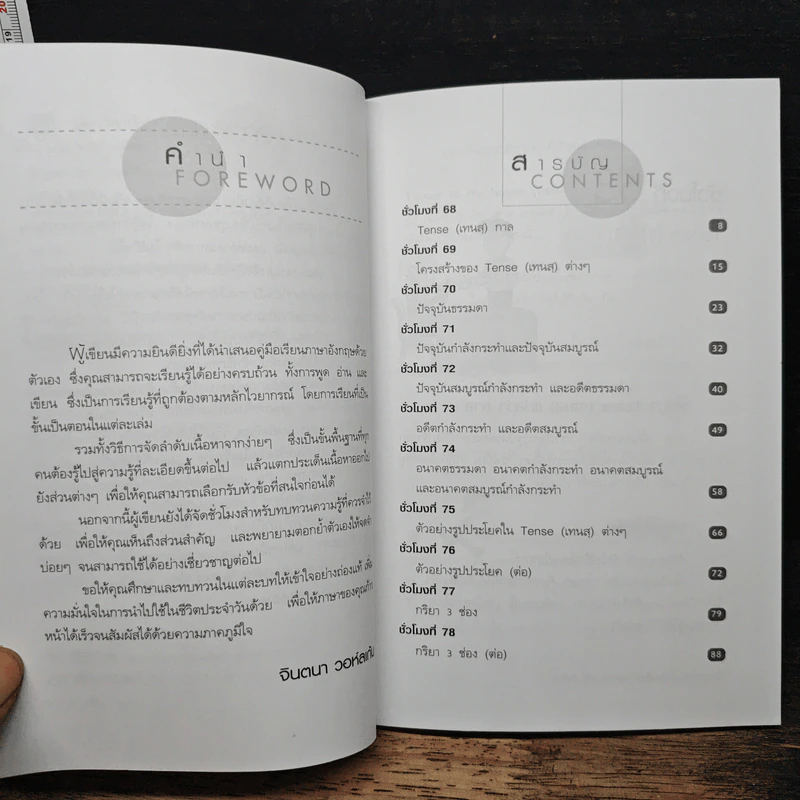 20
19
คำนำ
FOREWORD
ผู้เขียนมีความยินดียิ่งที่ได้นำเสนอคู่มือเรียนภาษาอังกฤษด้วย
ตัวเอง ซึ่งคุณสามารถจะเรียนรู้ได้อย่างครบถ้วน ทั้งการพูด อ่าน และ
เขียน ซึ่งเป็นการเรียนรู้ที่ถูกต้องตามหลักไวยากรณ์ โดยการเรียนที่เป็น
ขั้นเป็นตอนในแต่ละเล่ม
รวมทั้งวิธีการจัดลำดับเนื้อหาจากง่ายๆ ซึ่งเป็นขั้นพื้นฐานที่ทุก
คนต้องรู้ไปสู่ความรู้ที่ละเอียดขึ้นต่อไป แล้วแตกประเด็นเนื้อหาออกไป
ยังส่วนต่างๆ เพื่อให้คุณสามารถเลือกรับหัวข้อที่สนใจก่อนได้
นอกจากนี้ผู้เขียนยังได้จัดชั่วโมงสำหรับทบทวนความรู้ที่ควรจำไว้
ด้วย เพื่อให้คุณเห็นถึงส่วนสำคัญ และพยายามตอกย้ำตัวเองให้จดจำ
บ่อยๆ จนสามารถใช้ได้อย่างเชี่ยวชาญต่อไป
ขอให้คุณศึกษาและทบทวนในแต่ละบทให้เข้าใจอย่างถ่องแท้ เพื่อ
ความมั่นใจในการนำไปใช้ในชีวิตประจำวันด้วย เพื่อให้ภาษาของคุณก้าว
หน้าได้เร็วจนสัมผัสได้ด้วยความภาคภูมิใจ
จินตนา
สารบัญ
CONTENTS
ชั่วโมงที่ 68
Tense (เทนส) กาล 8
ชั่วโมงที่ 69
โครงสร้างของ Tense (เทนส) ต่างๆ 15
ชั่วโมงที่ 70
ปัจจุบันธรรมดา 23
ชั่วโมงที่ 71
ปัจจุบันกำลังกระทำและปัจจุบันสมบูรณ์ 32
ชั่วโมงที่ 72
ปัจจุบันสมบูรณ์กำลังกระทำ และอดีตธรรมดา 40
ชั่วโมงที่ 73
อดีตกำลังกระทำ และอดีตสมบูรณ์ 49
ชั่วโมงที่ 74
อนาคตธรรมดา อนาคตกำลังกระทำ อนาคตสมบูรณ์
และอนาคตสมบูรณ์กำลังกระทำ 58
ชั่วโมงที่ 75
ตัวอย่างรูปประโยคใน Tense (เทนส) ต่างๆ 66
ชั่วโมงที่ 76
ตัวอย่างรูปประโยค (ต่อ) 72
ชั่วโมงที่ 77
กริยา 3 ช่อง 79
ชั่วโมงที่ 78
กริยา 3 ช่อง (ต่อ) 88